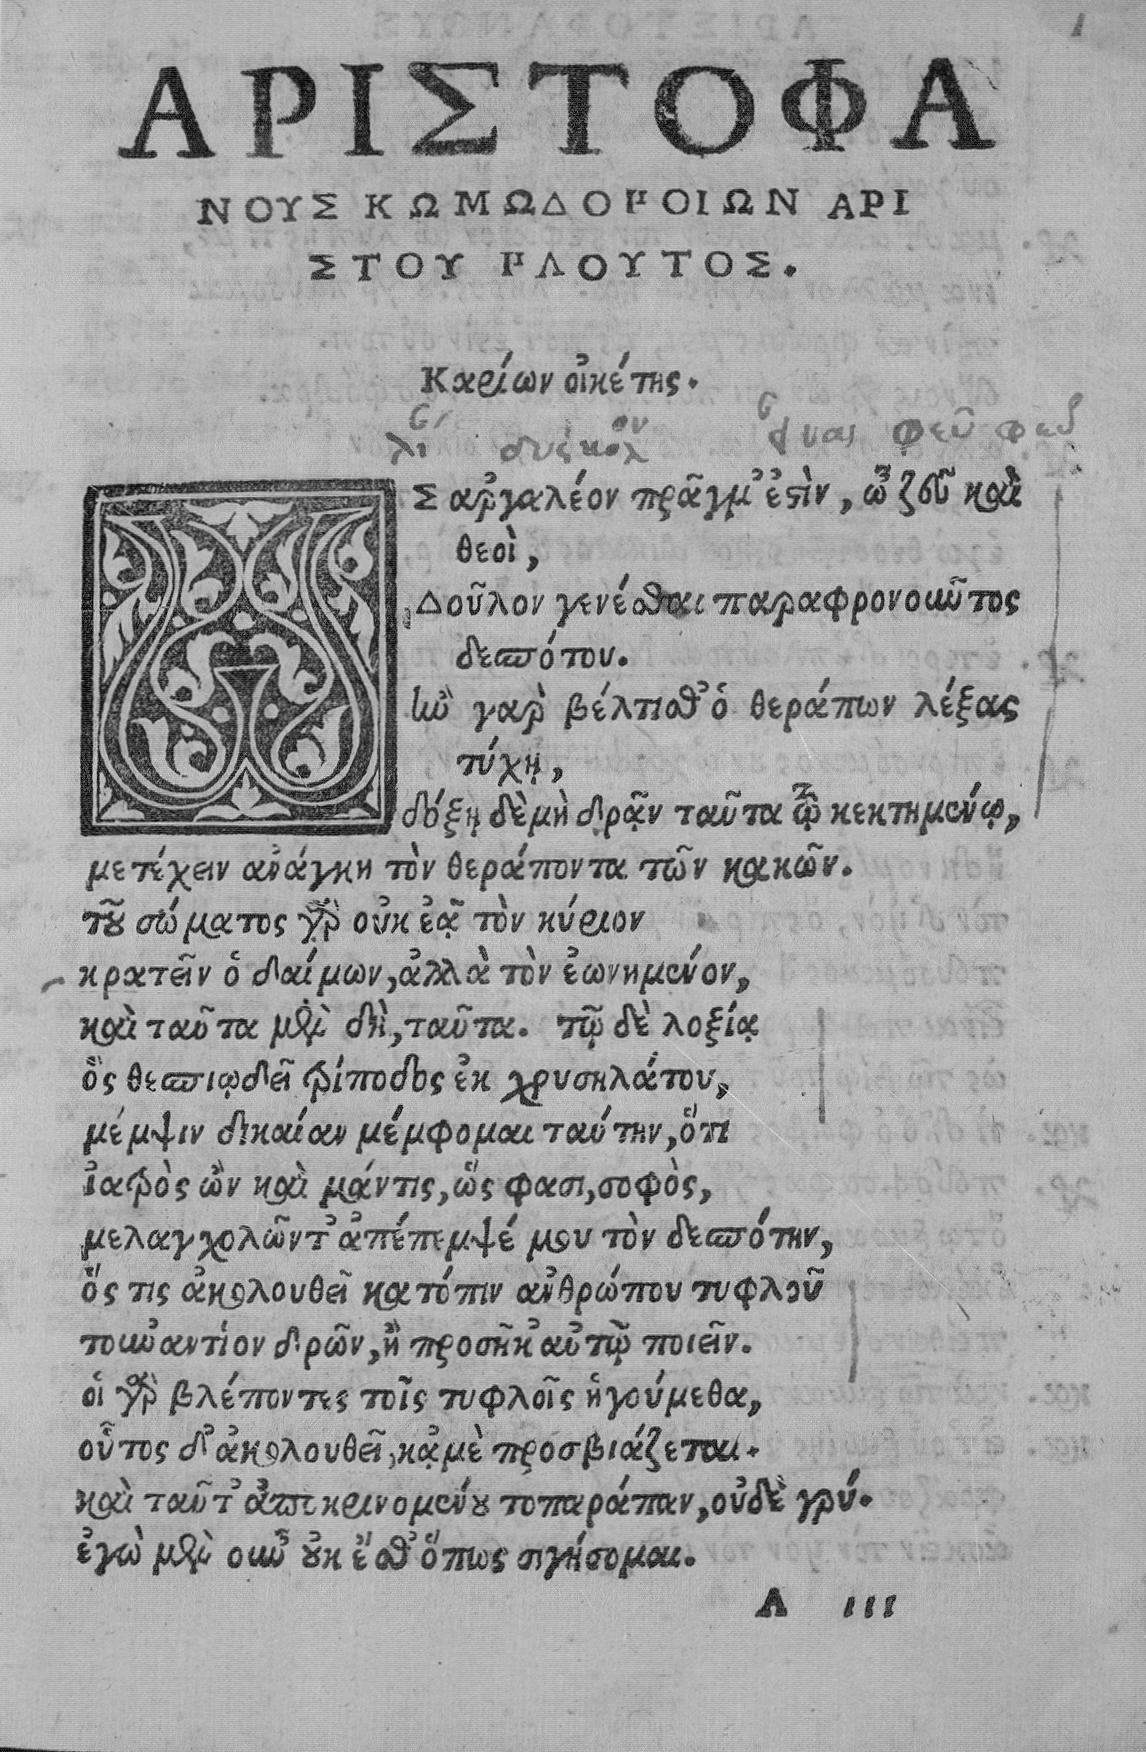 ΑΡΙΣΤΟΦΑ
ΝΟΥΣ ΚΩΜΩΔΟΠΟΙΩΝ ΑΡΙ
ΣΤΟΥ ΠΛΟΥΤΟΣ.
Καρίων οἰκέτης.
φεῦ φεῦ
ΩΣ ἀργαλέον πρᾶγμ' ἐστὶν, ὦ ζεῦ καὶ
θεοὶ,
Δοῦλον γενέσθαι παραφρονοῦντος
δεσπότου.
ἢν γὰρ βέλτισθ' ὁ θεράπων λέξας
τύχῃ,
δόξῃ δὲ μὴ δρᾷν ταῦτα τῷ κεκτημένῳ,
μετέχειν ἀνάγκη τὸν θεράποντα τῶν κακῶν.
τοῦ σώματος γὰρ οὐκ ἐᾷ τὸν κύριον
κρατεῖν ὁ δαίμων, ἀλλὰ τὸν ἐωνημένον,
καὶ ταῦτα μὲν δὴ, ταῦτα. τῷ δὲ λοξίᾳ
ὃς θεσπιῳδεῖ τρίποδος ἐκ χρυσηλάτου,
μέμψιν δικαίαν μέμφομαι ταύτην, ὅτι
ἰατρὸς ὢν καὶ μάντις, ὥς φασι, σοφὸς,
μελαγχολῶντ' ἀπέπεμψέ μου τὸν δεσπότην,
ὅς τις ἀκολουθεῖ κατόπιν ἀνθρώπου τυφλοῦ
τοὐναντίον δρῶν, ἢ προσῆκ' αὐτῷ ποιεῖν.
οἱ γὰρ βλέποντες τοῖς τυφλοῖς ἡγούμεθα,
οὗτος δ' ἀκολουθεῖ, κᾀμὲ προσβιάζεται.
καὶ ταῦτ' ἀποκρινομένου τοπαράπαν, οὐδὲ γρύ.
ἐγὼ μὲν οὖν οὐκ ἔσθ' ὅπως σιγήσομαι.
Α ιιι